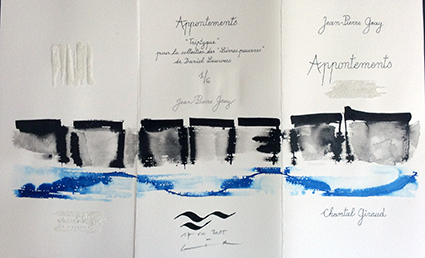 Appontements
"Triptyque"
pour la collection des "Livres pauvres"
de Daniel Leuwers
1/6
Jean-Pierre Geay
Jean-Pierre Geay
Appontements
Chantal Giraud